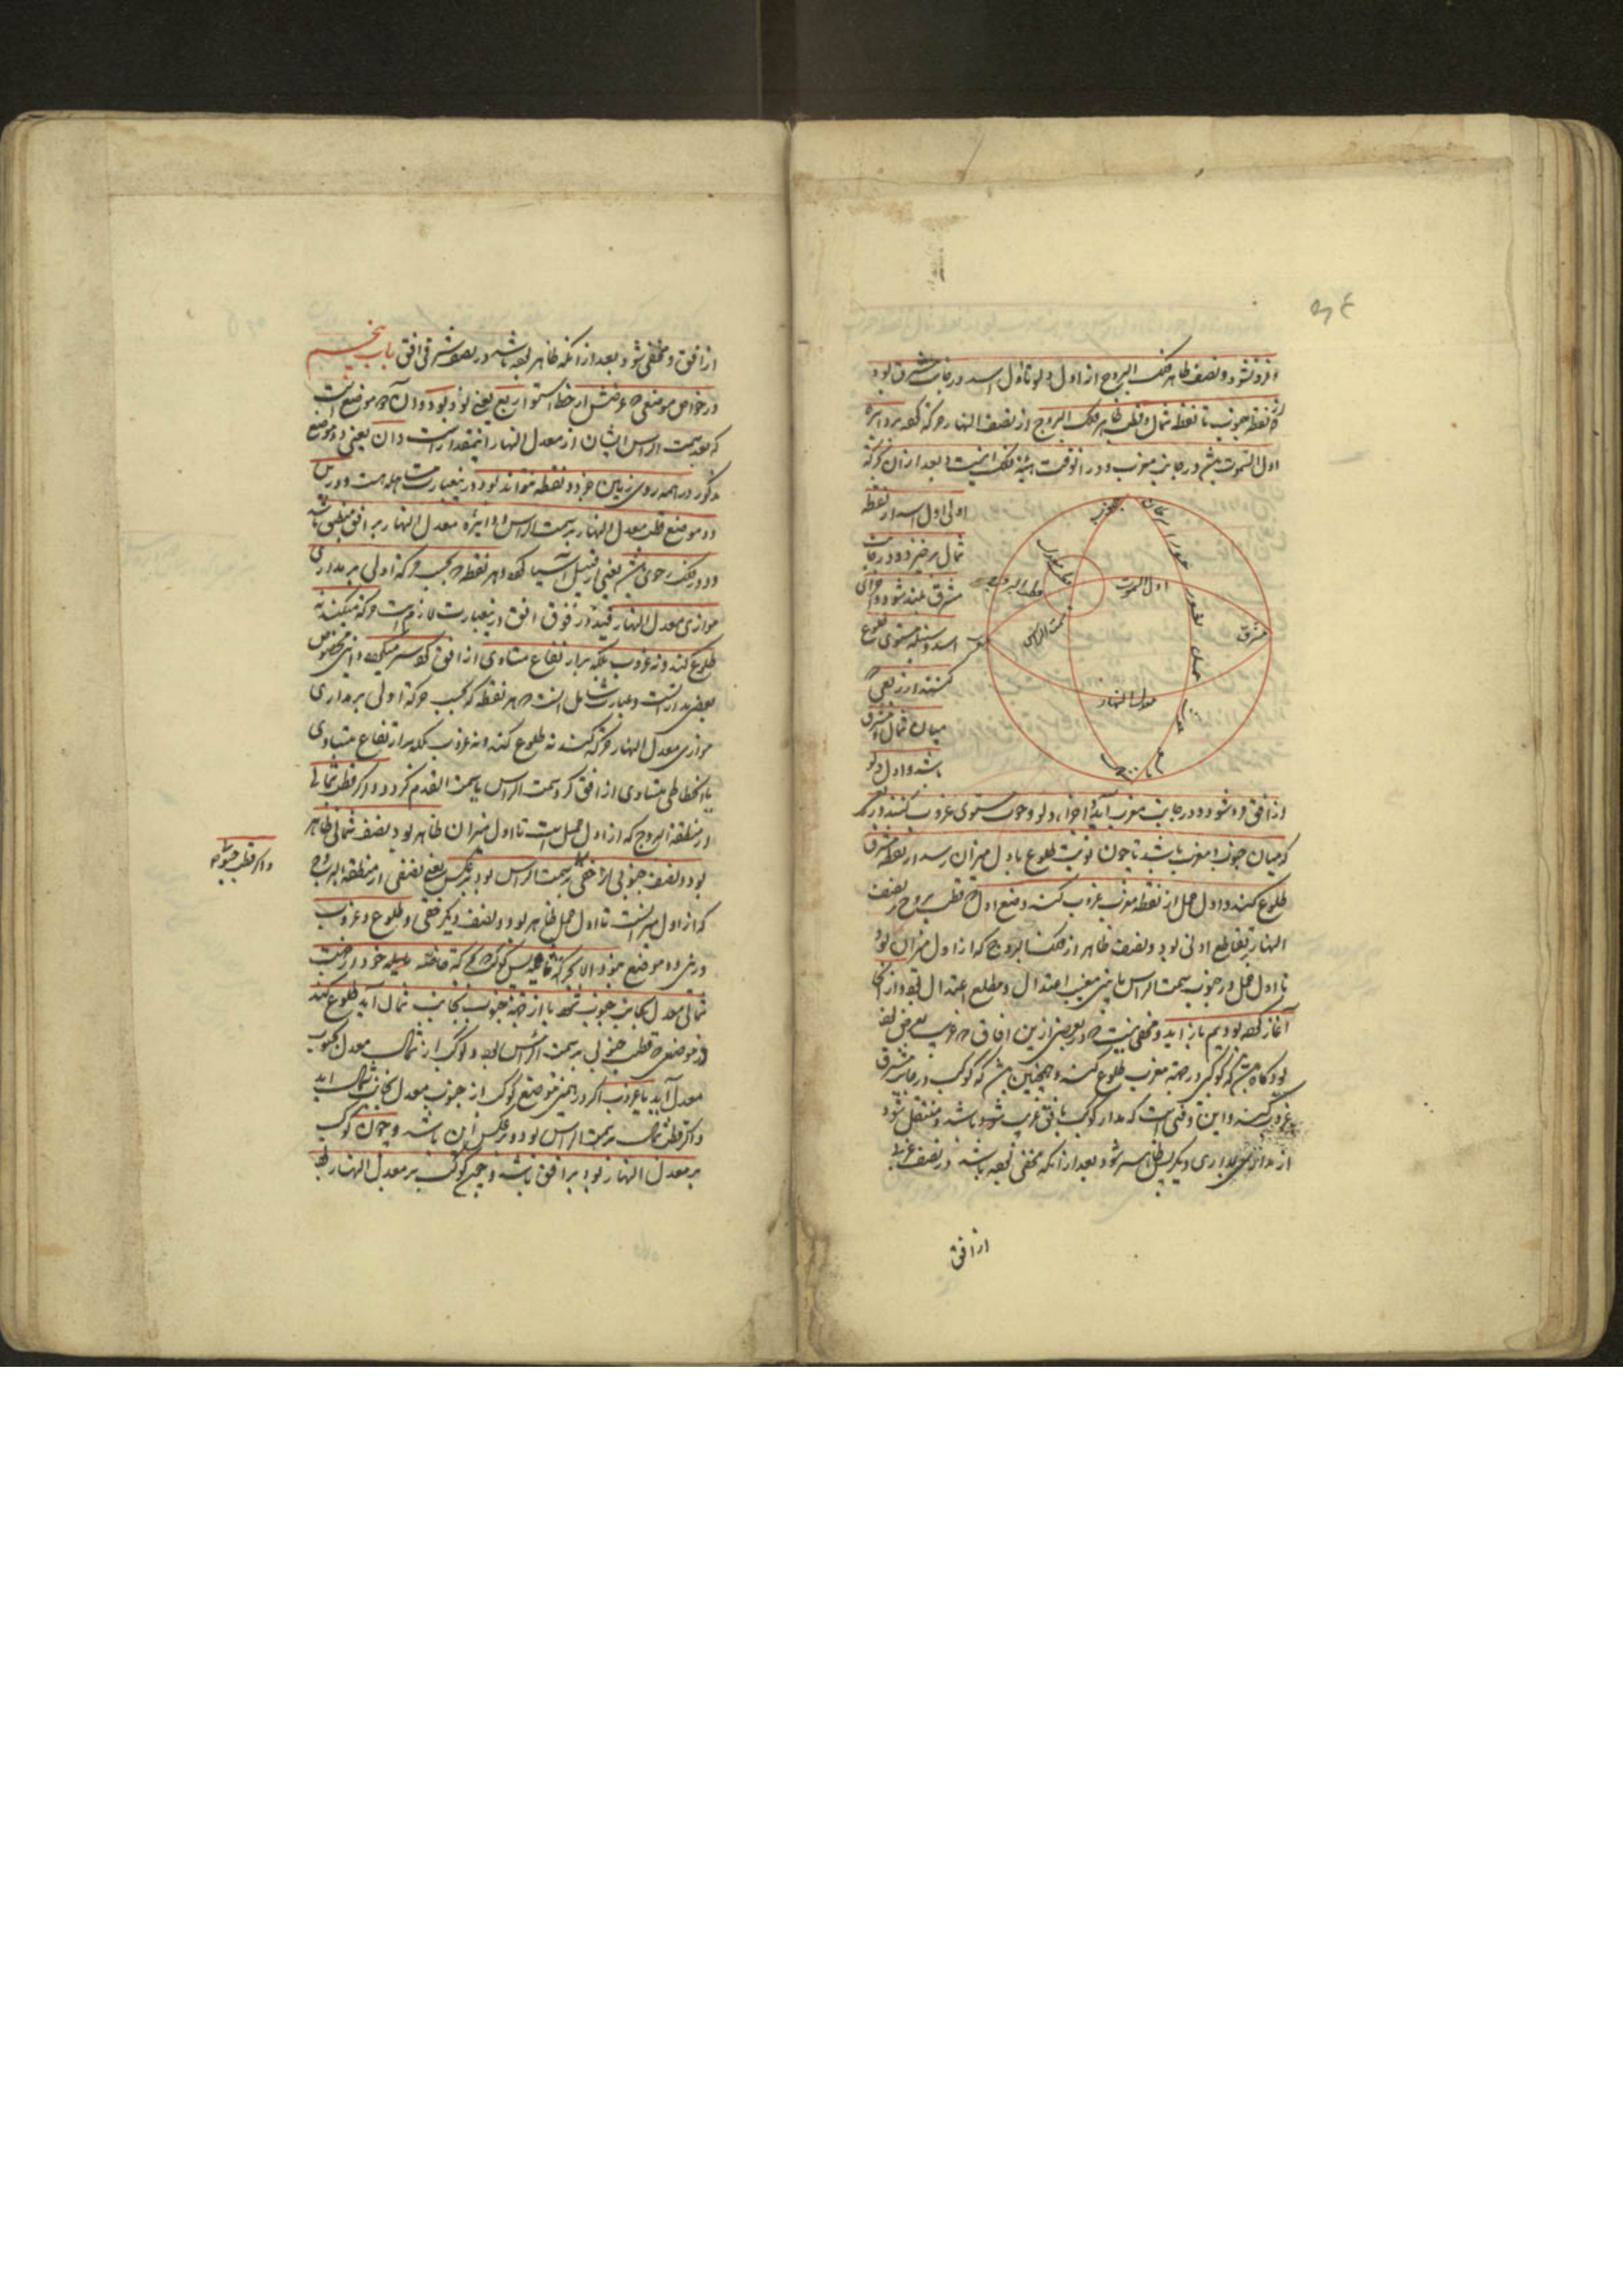 و فرو نشود و نصف ظاهر فلک البروج از اول دلو تا اول اسد در جانب مشرق بود
از نقطه جنوب تا نقطه شمال و قطب ظاهر فلک البروج از نصف النهار حرکه کرده بر دایره
اول السموت باشد در جانب مغرب و در انوقت هیئة فلک اینست و بعد از ان حرکه
اولی اول اسد از نقطه
شمال برخیزد و در جانب
مشرق بلند شود و اجزای
اسد و سنبله مستوی طلوع
کنند از ربعی که
میان شمال و مشرق
باشد و اول دلو
جنوب
سرطان
جوزا
ثور
حمل
حوت
دلو
مشرق
مغرب
شمال
اول السموت
قطب البروج
قطب معدل
سمت الراس
معدل النهار
از افق فرو شود و در جانب مغرب آید و اجزاء دلو و حوت مستوی غروب کنند در ربعی
که میان جنوب و مغرب باشد تا چون نوبت طلوع باول میزان رسد از نقطه مشرق
طلوع کند و اول حمل از نقطه مغرب غروب کند و وضع اول که قطب بروج بر نصف
النهار تقاطع اولی بود و نصف ظاهر از فلک البروج که از اول میزان بود
تا اول حمل در جنوب سمت الراس مابین مغیب اعتدال و مطلع اعتدال بود و از انجا
آغاز کرده بودیم باز آید و مخفی نیست که در بعضی ازین افاق که قریب بعرض
بود گاه باشد که کوکبی در جهة مغرب طلوع کند و همچنین باشد که کوکب در جانب مشرق
غروب کند و این وقتی است که مدار کوکب بافق قریب شده باشد و منتقل شود
از مداری بمداری دیگر پس ظاهر شود بعد از آنکه مخفی بوده باشد در نصف غربی
از افق
از افق و مخفی شود بعد از آنکه ظاهر بوده باشد در نصف شرقی افق باب پنجم
در خواص موضعی که عرضش از خط استوا ربع یعنی نود بود و ان دو موضع است
که بعد سمت الراس ایشان از معدل النهار اینمقدار است و ان یعنی دو موضع
مذکور در همه روی زمین جز دو نقطه نتواند بود در اینعبارت مساهله هست و درین
دو موضع قطب معدل النهار بر سمت الراس و دایرۀ معدل النهار بر افق منطبق باشد
و دور فلک رحوی باشد یعنی از قبیل آسیا کردد و هر نقطه که بحسب حرکه اولی بر مداری
موازی معدل النهار قید در فوق افق درینعبارت لازم است حرکه میکنند نه
طلوع کند و نه غروب بلکه بر ارتفاع متساوی از افق کرد سر میکردد و این مخصوص
بعض مدارتست و عبارت شامل انست که هر نقطه که بحسب حرکه اولی بر مداری
موازی معدل النهار حرکه کند نه طلوع کند و نه غروب بلکه بر ارتفاع متساوی
یا انحطاطی متساوی از افق کرد سمت الراس یا سمت القدم کردد و اکر قطب شمالی
و منطقة البروج که از اول حمل است تا اول میزان ظاهر بود یعنی نصف شمالی ظاهر
بود و نصف جنوبی ابدی الخفی بسمت الراس بود بر عکس یعنی نصفی از منطقه البروج
که از اول میزانست تا اول حمل ظاهر بود و نصف دیکر خفی و طلوع و غروب
درین دو موضع نبود الا بحرکه ثانیه پس کوکب که بحرکه خاصه خود از جهت
شمالی معدل بجانب جنوب شود یا از جهة جنوب بجانب شمال آید طلوع کند
در موضعی که قطب جنوبی بر سمت الراس بود و کوکب از شمال معدل بجنوب
معدل آید یا غروب اکر در همین موضع کوکب از جنوب معدل بجانب شمال آید
و اکر قطب شمالی بسمت الراس بود بر عکس این باشد و چون کوکب
بر معدل النهار بود بر افق باشد و هیچ کوکب بر معدل النهار
و اکر قطب جنوبی